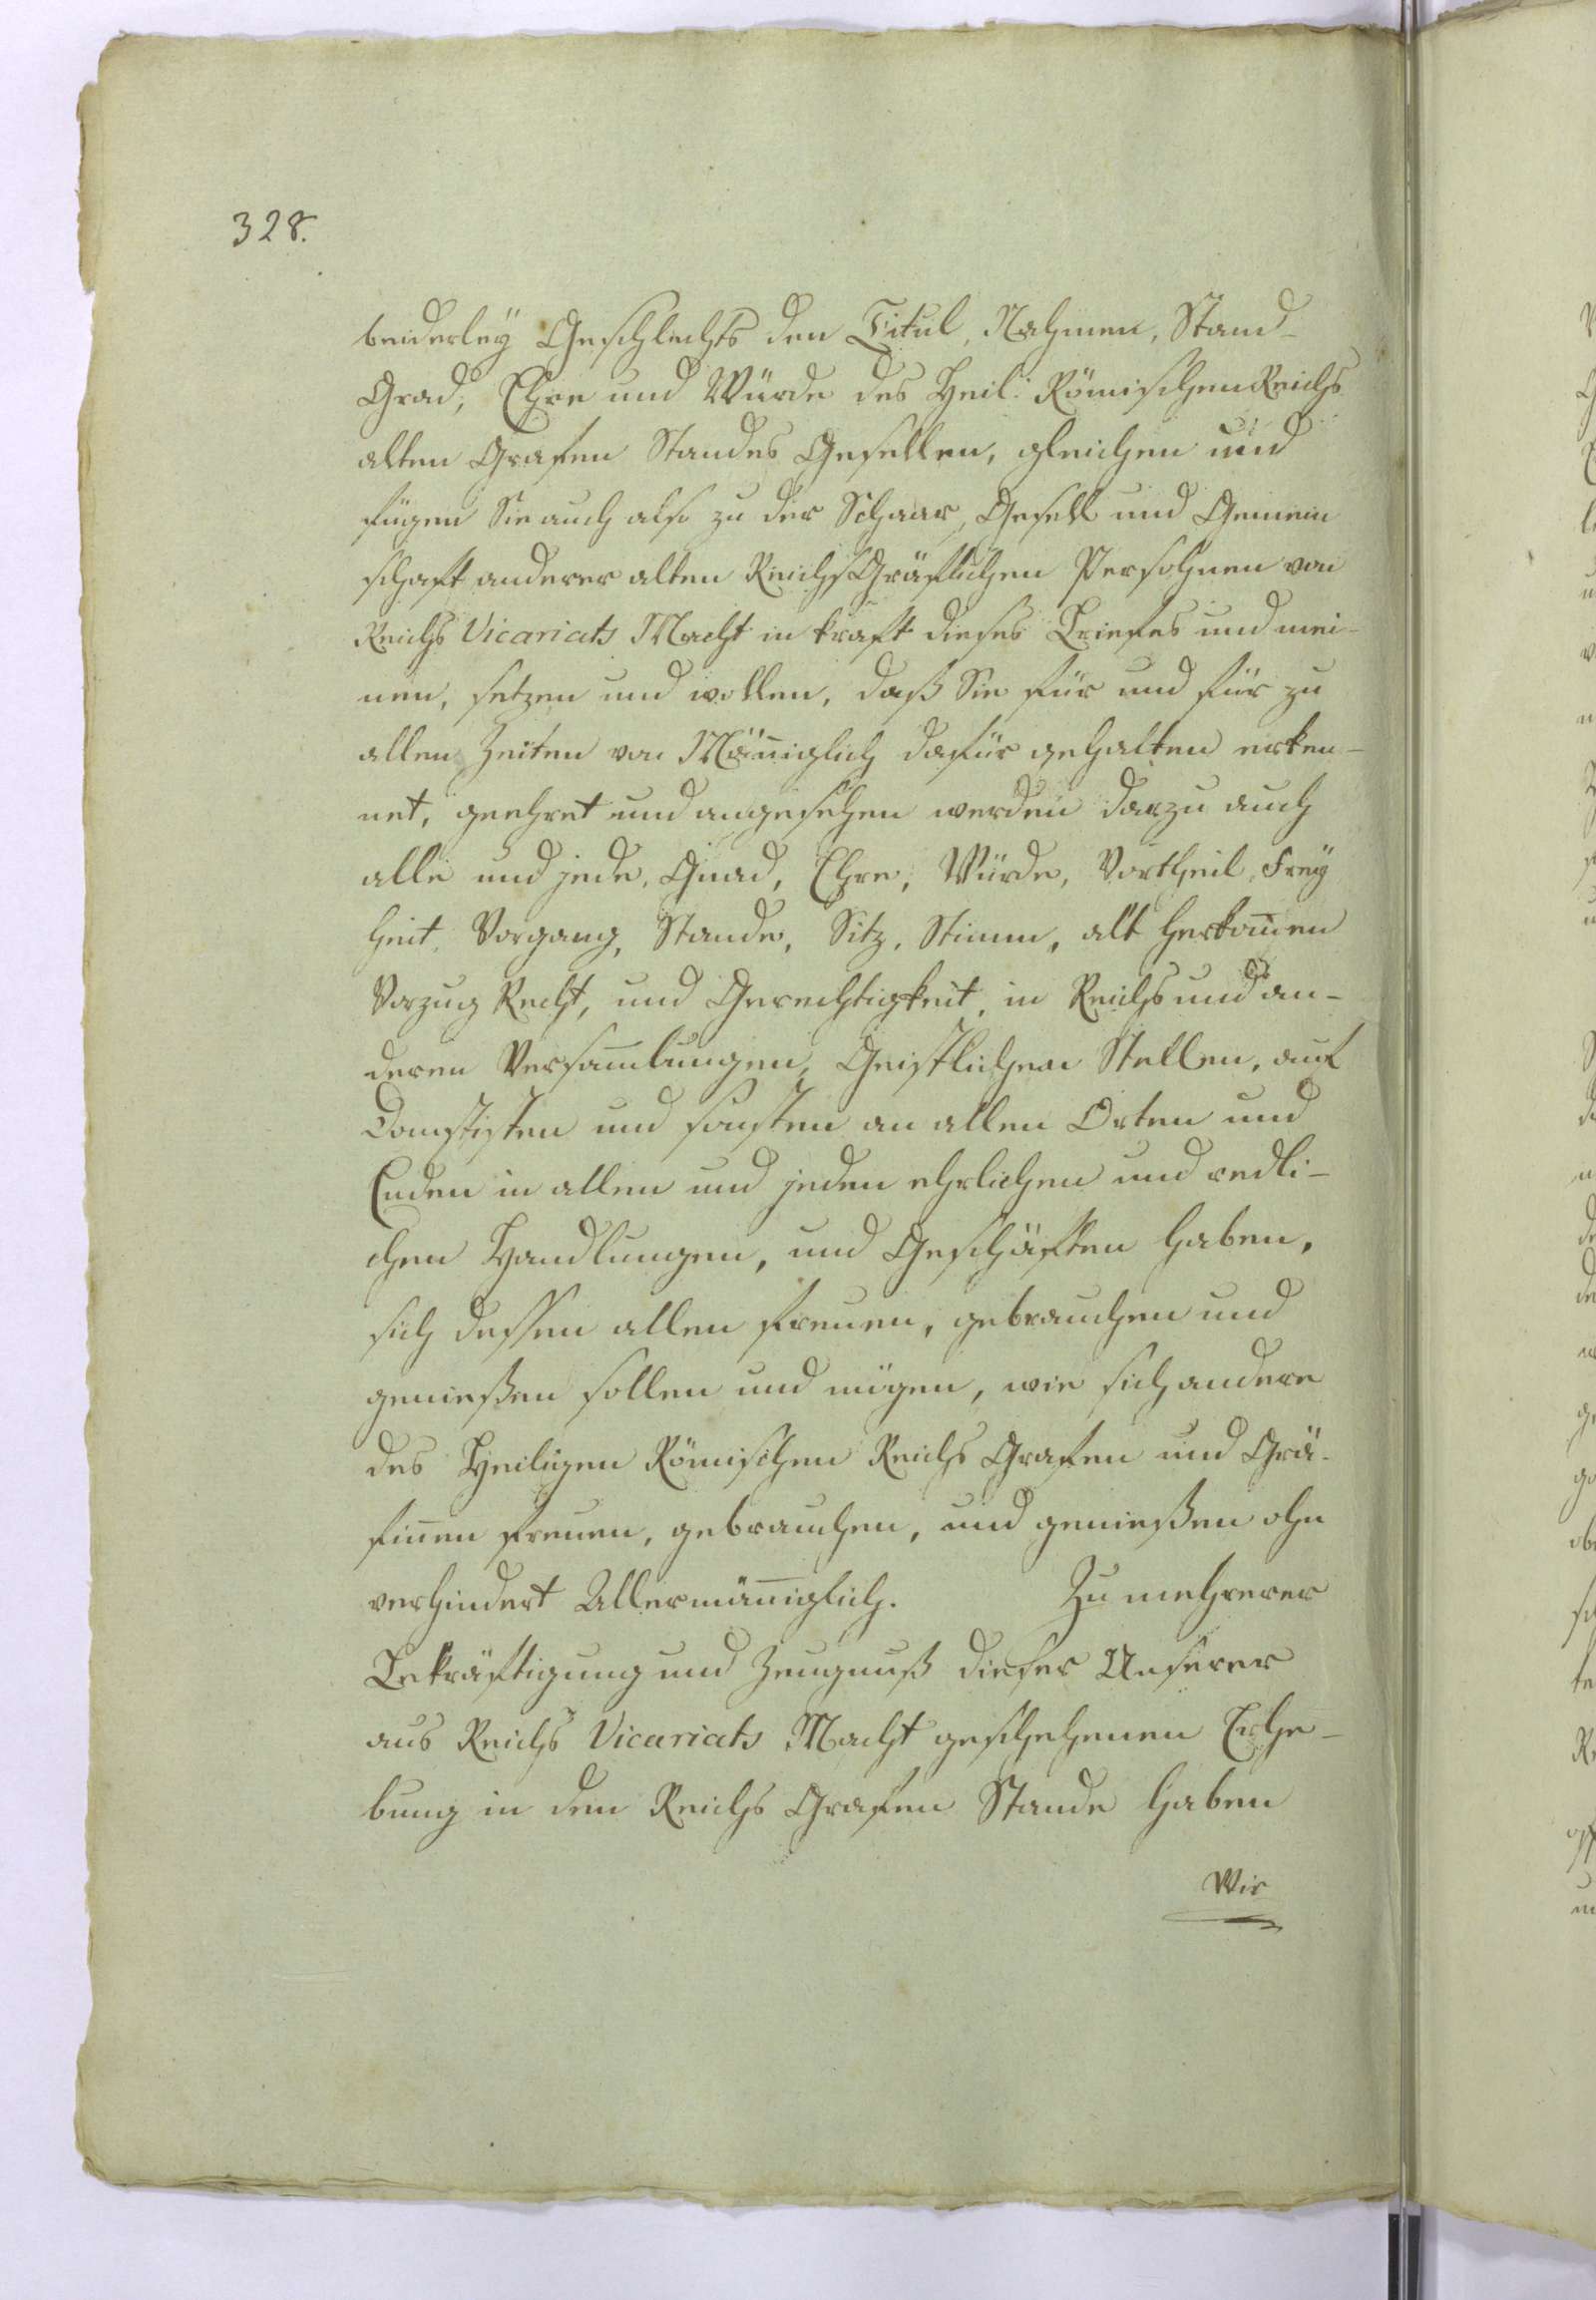 328.
beiderley Geschlechts den Titul, Nahmen, Stand-
Grad, Ehre und Würde des Heil. Römischen Reichs
alten Grafen Standes Gesellen, gleichen und
fügen Sie auch also zu der Schaar, Gesell und Gemein
schaft anderer alten Reichs Gräflichen Persohnen von
Reichs Vicariats Macht in kraft dieses Briefes und mei-
nen, setzen und wollen, daß Sie für und für zu
allen Zeiten von Männiglich dafür gehalten erken-
net, geehret und angesehen werden darzu auch
alle und jede, Gnad, Ehre, Würde, Vortheil, Frey
heit, Vorgang, Stande, Sitz, Stimm, alt herkom̄en
Vorzug Recht, und Gerechtigkeit, in Reichs und an-
deren Versam̄lungen, Geistlichen Stellen, auf
Domstiften und sonsten an allen Orten und
Enden in allen und jeden ehrlichen und redli-
chen Handlungen, und Geschäften haben,
sich dessen allen freuen, gebrauchen und
genießen sollen und mögen, wie sich andere
des Heiligen Römischen Reichs Grafen und Grä-
fin̄en freuen, gebrauchen, und genießen ohn
verhindert Allermän̄iglich. Zu mehrerer
Bekräftigung und Zeugnuß dieser Unserer
aus Reichs Vicariats Macht geschehenen Erhe-
bung in den Reichs Grafen Stande haben
Wir